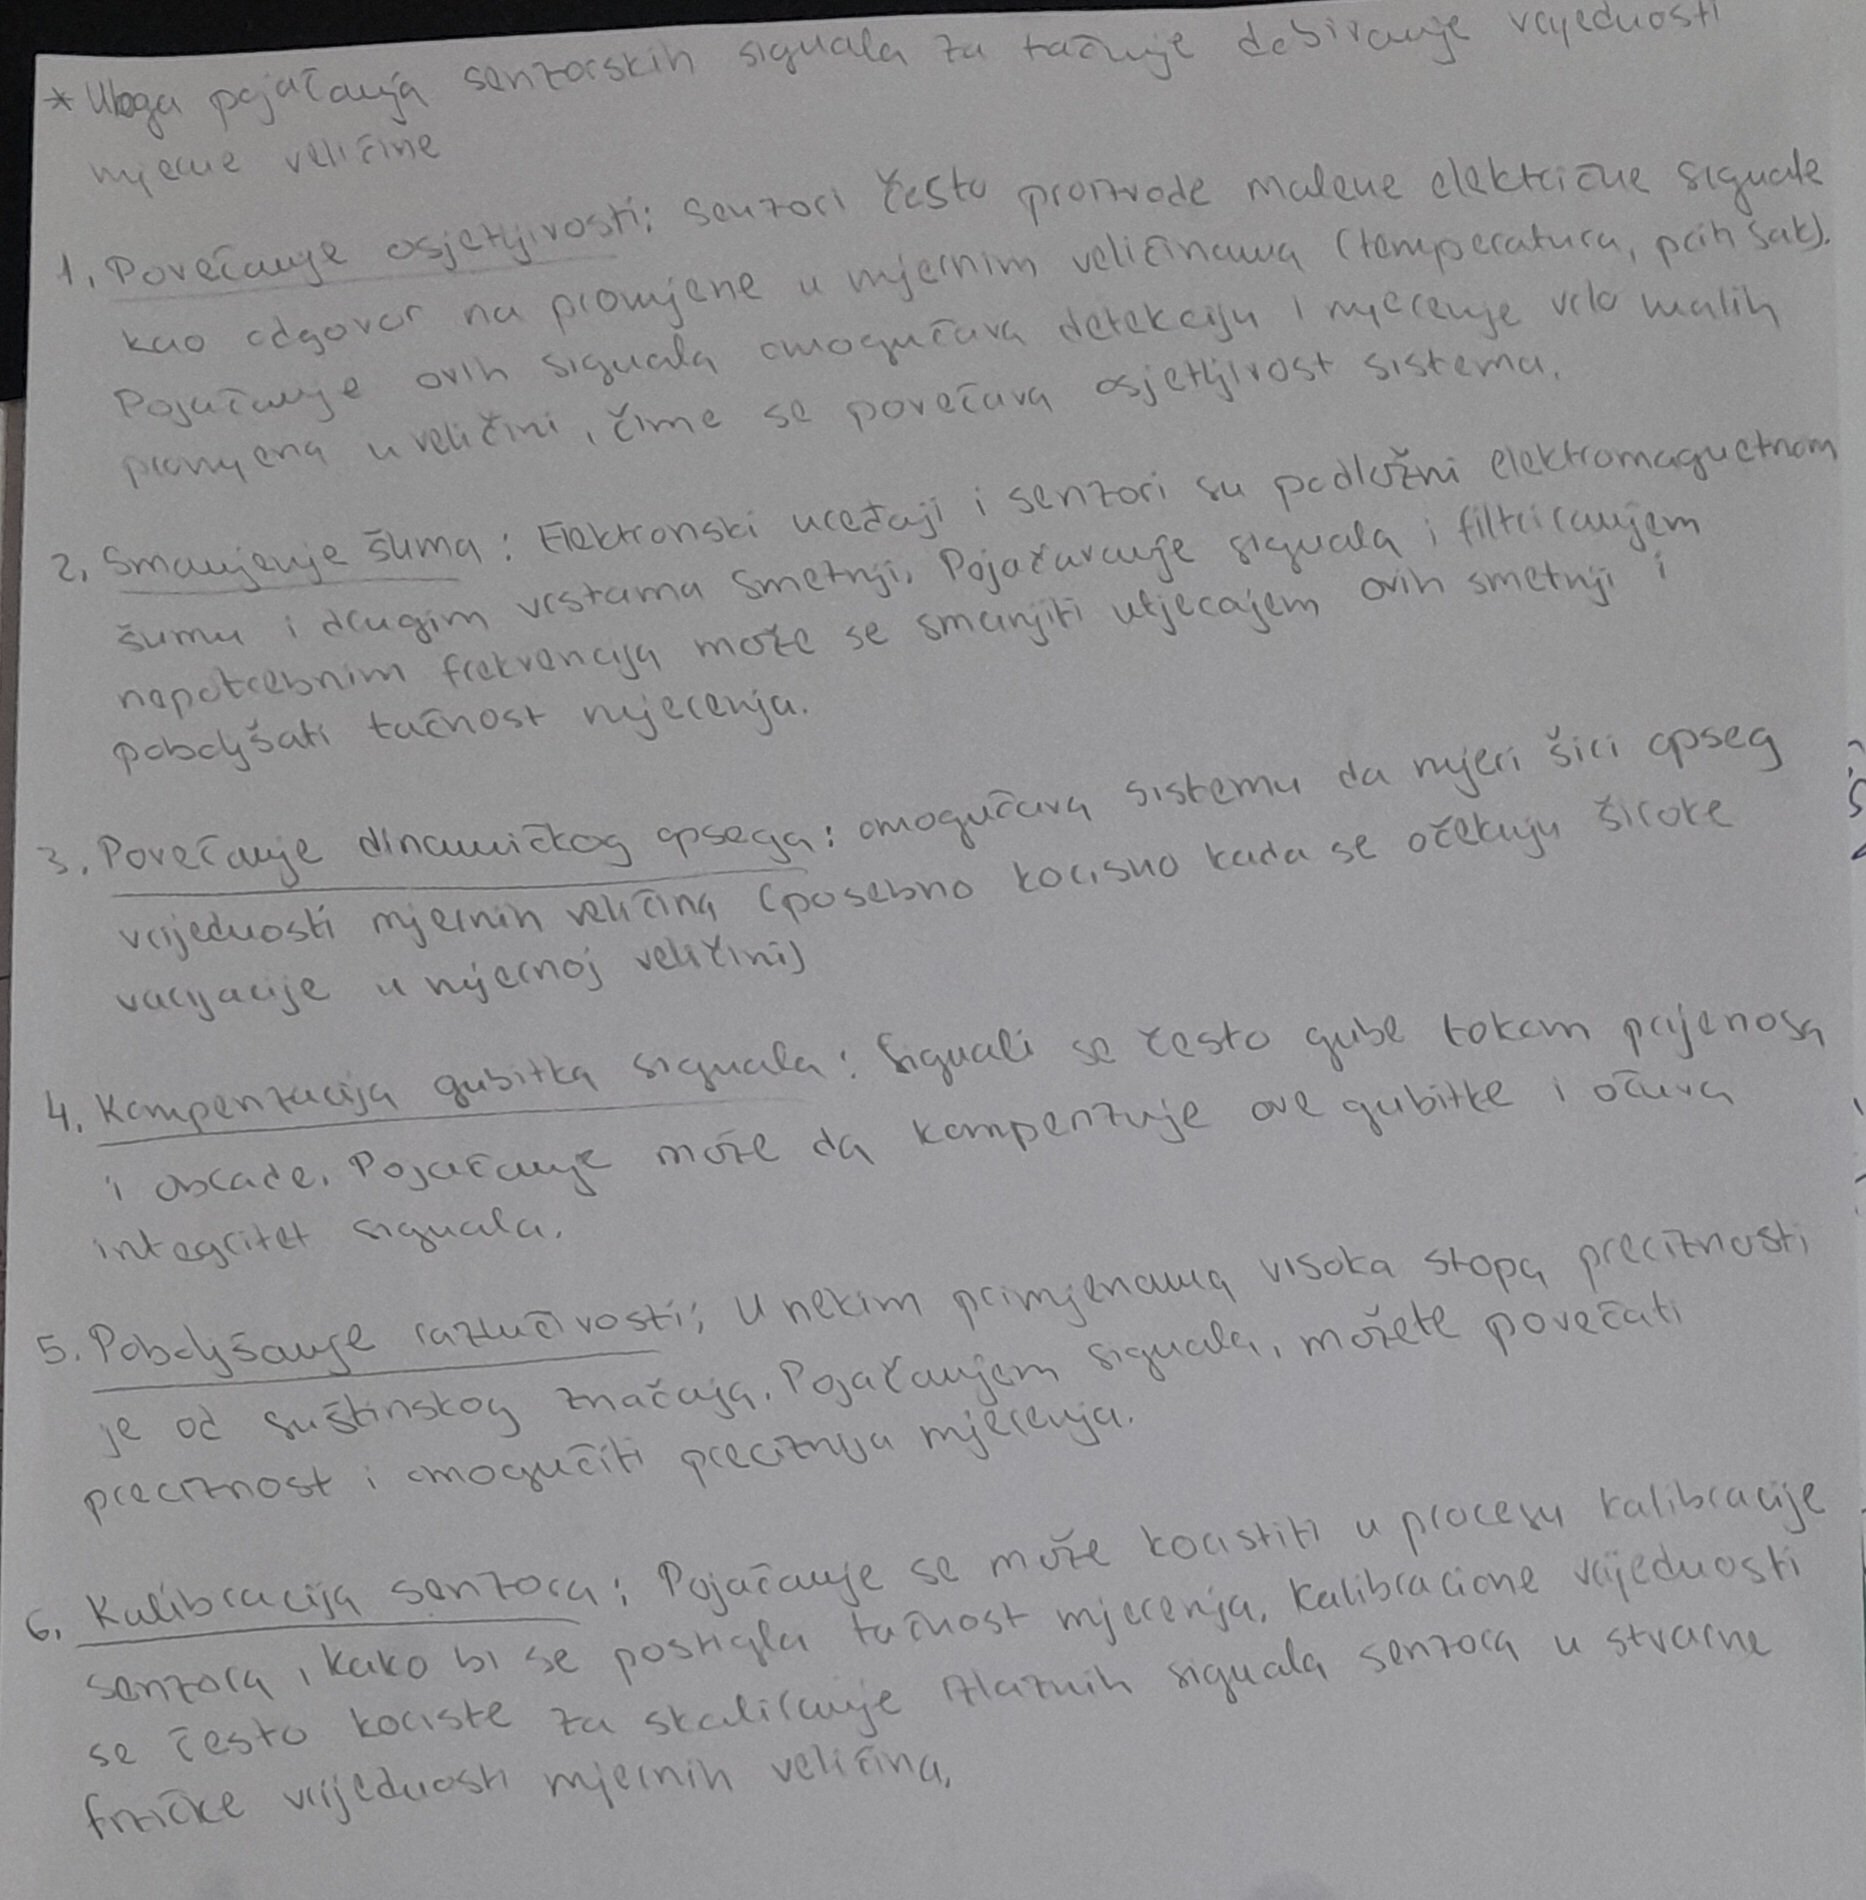 * Uloga pojačanja senzorskih signala za tačnije dobivanje vrijednosti
mjerne veličine
1. Povećanje osjetljivosti: senzori često proizvode malene električne signale
kao odgovor na promjene u mjernim veličinama (temperatura, pritisak).
Pojačanje ovih signala omogućava detekciju i mjerenje vrlo malih
promjena u veličini, čime se povećava osjetljivost sistema.
2. Smanjenje šuma: Elektronski uređaji i senzori su podložni elektromagnetnom
šumu i drugim vrstama smetnji, Pojačavanje signala i filtriranjem
nepotrebnim frekvencija može se smanjiti utjecajem ovih smetnji i
poboljšati tačnost mjerenja.
3. Povećanje dinamičkog opsega: omogućava sistemu da mjeri širi opseg
vrijednosti mjernih veličina (posebno korisno kada se očekuju široke
varijacije u mjernoj veličini)
4. Kompenzacija gubitka signala: Signali se često gube tokom prijenosa
i obrade. Pojačanje može da kompenzuje ove gubitke i očuva
integritet signala.
5. Poboljšanje razlučivosti; U nekim primjenama visoka stopa preciznosti
je od suštinskog značaja. Pojačanjem signala, možete povećati
preciznost i omogućiti preciznija mjerenja.
6. Kalibracija senzora; Pojačanje se može koristiti u procesu kalibracije
senzora, kako bi se postigla tačnost mjerenja. Kalibracione vrijednosti
se često koriste za skaliranje izlaznih signala senzora u stvarne
fizičke vrijednosti mjernih veličina.